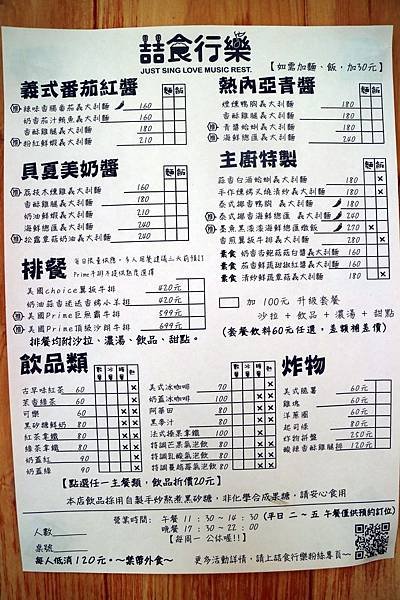 喆食行樂
JUST SING LOVE MUSIC REST.
【如需加麵、飯，加30元】
義式番茄紅醬 麵 飯
辣味香腸番茄義大利麵 160
奶香茄汁鮪魚義大利麵 160
香酥雞腿義大利麵 180
粉紅鮮蝦義大利麵 210
熱內亞青醬 麵 飯
煙燻鴨胸義大利麵 180
香酥雞腿義大利麵 180
青醬蛤蜊義大利麵 180
海鮮總匯義大利麵 240
貝夏美奶醬 麵 飯
荔枝木燻雞義大利麵 160
香酥雞腿義大利麵 180
奶油鮮蝦義大利麵 210
海鮮總匯義大利麵 240
松露蕈菇奶油義大利麵 240
主廚特製 麵 飯
蒜香白酒蛤蜊義大利麵 180
手作燻烤叉燒清炒義大利麵 180
泰式椰香鴨胸義大利麵 190
泰式椰香海鮮總匯義大利麵 240
墨魚黑漆漆海鮮總匯燉飯 270
香煎翼板牛排義大利麵 280
素食 奶香杏鮑菇菇白醬義大利麵 160
素食 茄香鮮蔬甜椒紅醬義大利麵 160
素食 清炒鮮蔬蕈菇義大利麵 160
排餐
每日限量供應，多人用餐建議三天前預訂
Prime牛排不提供熟度選擇
美國choice翼板牛排 420元
奶油蒜香迷迭香烤小羊排 420元
美國Prime巨無霸牛排 599元
美國Prime頂級沙朗牛排 699元
排餐均附沙拉、濃湯、飲品、甜點。
加 100元 升級套餐
沙拉 + 飲品 + 濃湯 + 甜點
(套餐飲料60元任選，差額補差價)
飲品類
古早味紅茶 60
茉香綠茶 60
可樂 60
黑砂糖鮮奶 80
紅茶拿鐵 80
綠茶拿鐵 80
奶蓋紅 90
奶蓋綠 90
美式冰咖啡 70
奶蓋冰咖啡 100
阿華田 80
黑麥汁 80
法式榛果拿鐵 100
特調芒果氣泡飲 80
特調藍柑氣泡飲 80
特調蔓越莓氣泡飲 80
炸物
美式脆薯 60元
雞塊 60元
洋蔥圈 60元
起司條 80元
炸物拼盤 250元
酸辣香酥雞腿排 120元
【點選任一主餐類，飲品折價20元】
本店飲品採用自製手炒熬煮黑砂糖，非化學合成果糖，請安心食用
營業時間： 午餐 11：30～14：30 (平日 二～五 午餐僅供預約訂位)
晚餐 17：30～22：00
【每周一 公休喔!!】
人數
桌號
每人低消120元。~禁帶外食~
更多活動詳情，請上喆食行樂粉絲專頁~